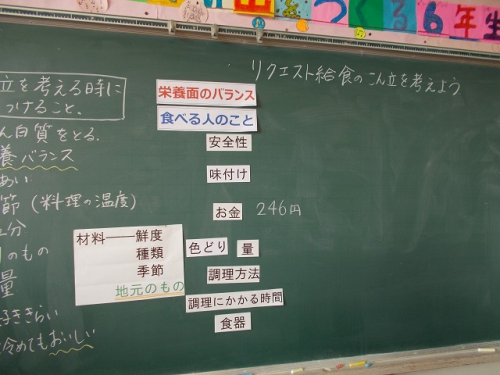 つくる6年生
リクエスト給食のこん立を考えよう
立を考える時に
つけること。
ん白質をとる。
養バランス
あい
節(料理の温度)
分
のもの
量
子ききらい
冷めてもおいしい
栄養面のバランス
食べる人のこと
安全性
味付け
お金 246円
材料――鮮度
種類
季節
地元のもの
色どり 量
調理方法
調理にかかる時間
食器